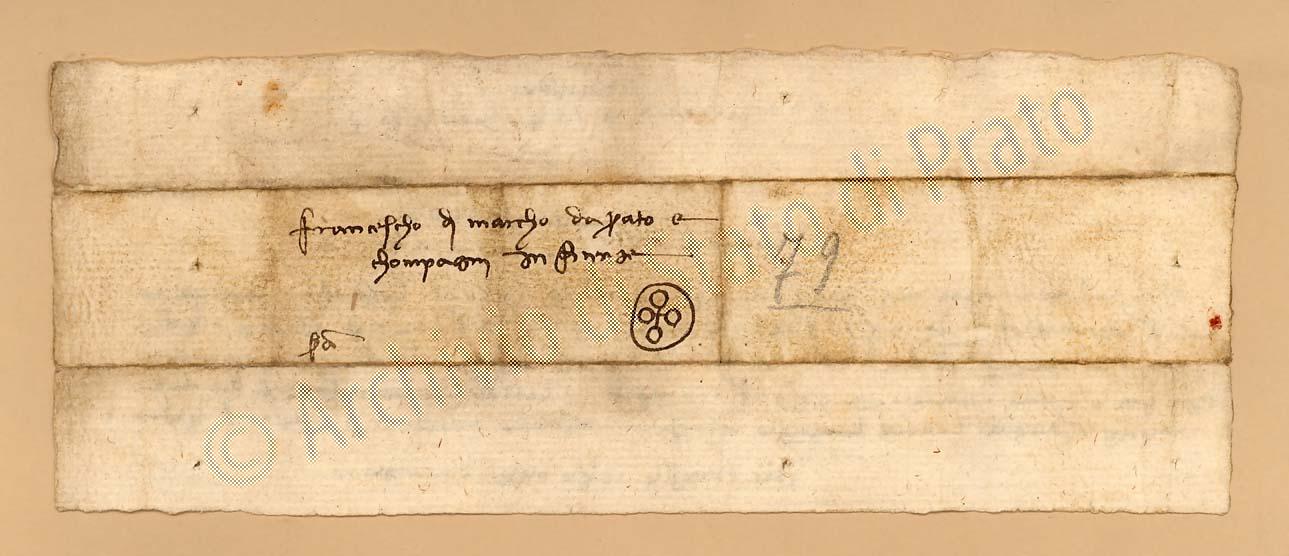 francescho di marcho da prato e
chompagni in firenze
pa
79
© Archivio di Stato di Prato